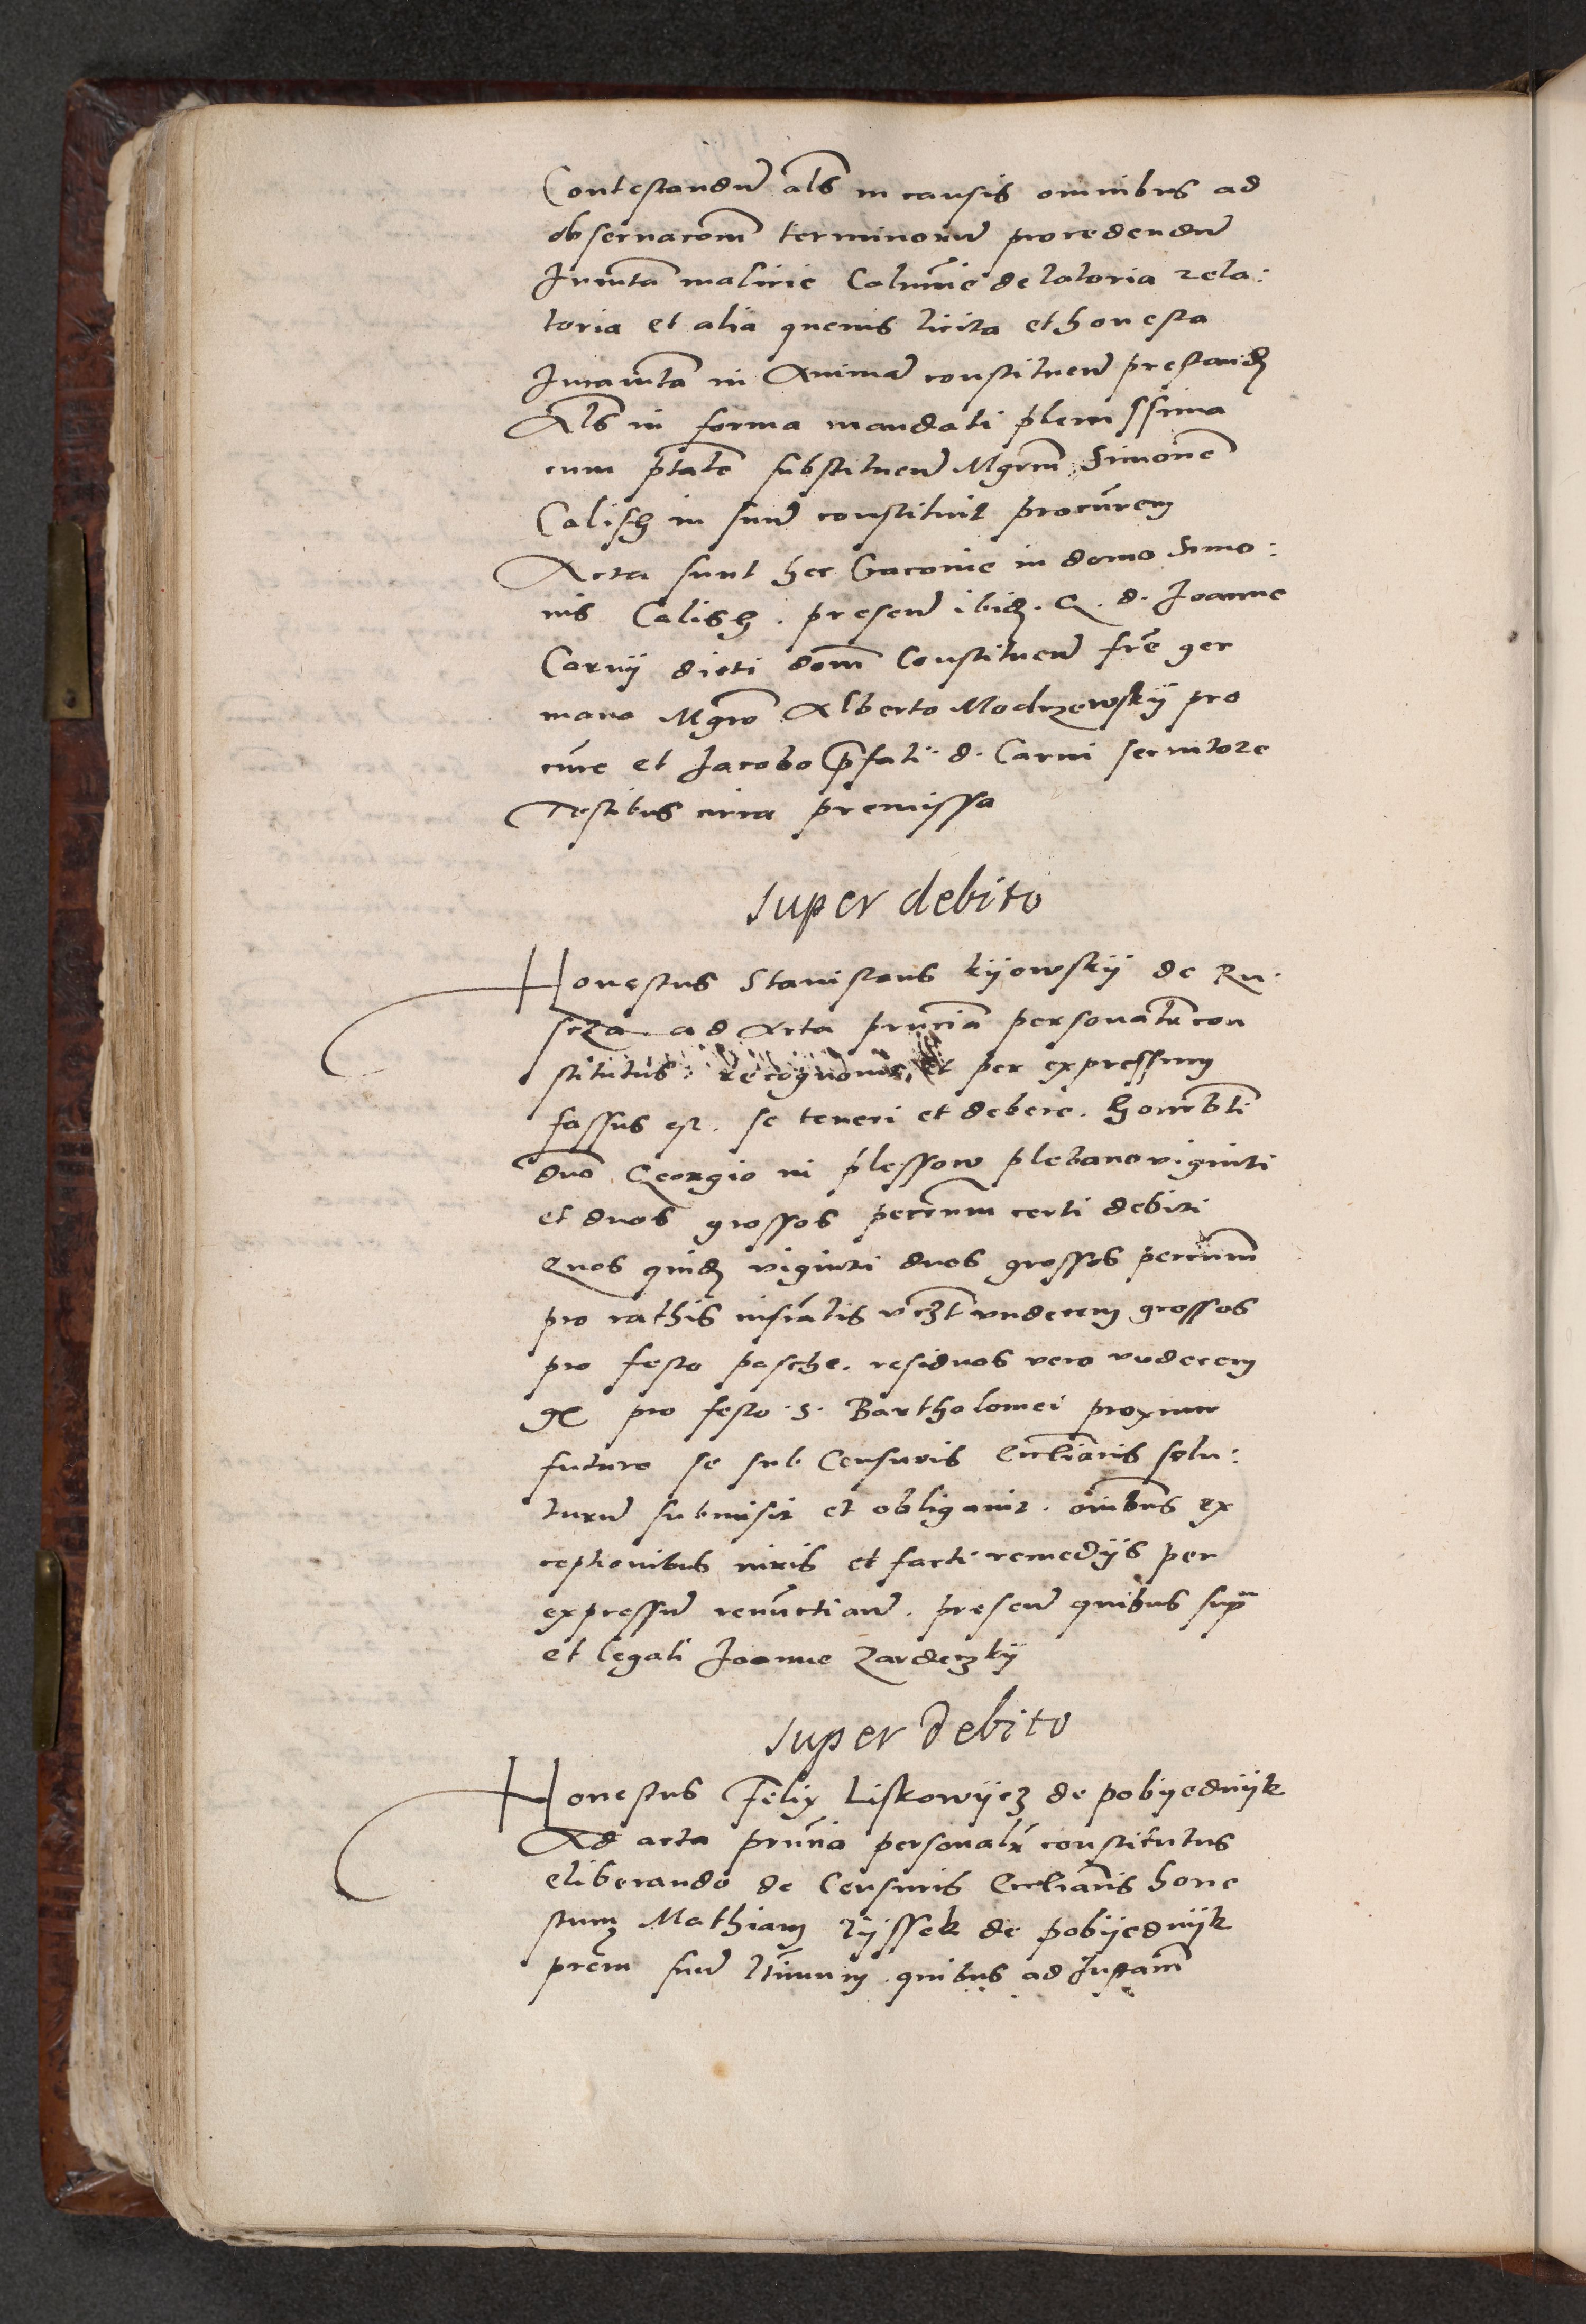 Contestandū als in causis omnibus ad
observacōm terminorum procedendū
Jurāmtā malicie Calumnie delatoria rela:
toria et alia quevis licita et honesta
Juramta in Animā constituen̄ prestand
Als in forma mandati plenissima
cum ptāte substituen̄ Mgrm Simonē
Calish in suū constituit procurem
Acta sunt hec Cracovie in domo Simo:
nis Calish. presen̄ ibid. G. d. Joanne
Carnij dicti dom̄ Constituen̄ frē ger
mano Mgro Alberto Modrzewskij pro
cure et Jacobo p̄fati d. Carni servitore
Testibus circa premissa
super debito
Honestus Stanislaus kijowskij de Ru
scza ad Acta prnciā personalr con
stitutus recognovit, et per expressum
fassus est. se teneri et debere. honrbli
dno Georgio in plessow plebano viginti
et duos grossos peccunm certi debiti
Quos quid viginti duos grossos peccunm
pro rathis infratis vczt undecem grossos
pro festo pasche. residuos vero undecem
gr pro festo S. Bartholomei proxime
futuro se sub Censuris Ecclianis solu:
turū submisit et obligavit. omnibus ex
ceptionibus iuris et facti remedijs per
expressū renunctian̄. presen̄ quibus supra
et legali Joanne Zardeczkij
super Debito
Honestus Felix Liskowijcz de pobijednijk
Ad acta prncia personalr constitutus
eliberando de Censuris Ecclianis hone
stum Mathiam rijssek de pobijednijk
prem suū ltimum quibus ad Justam